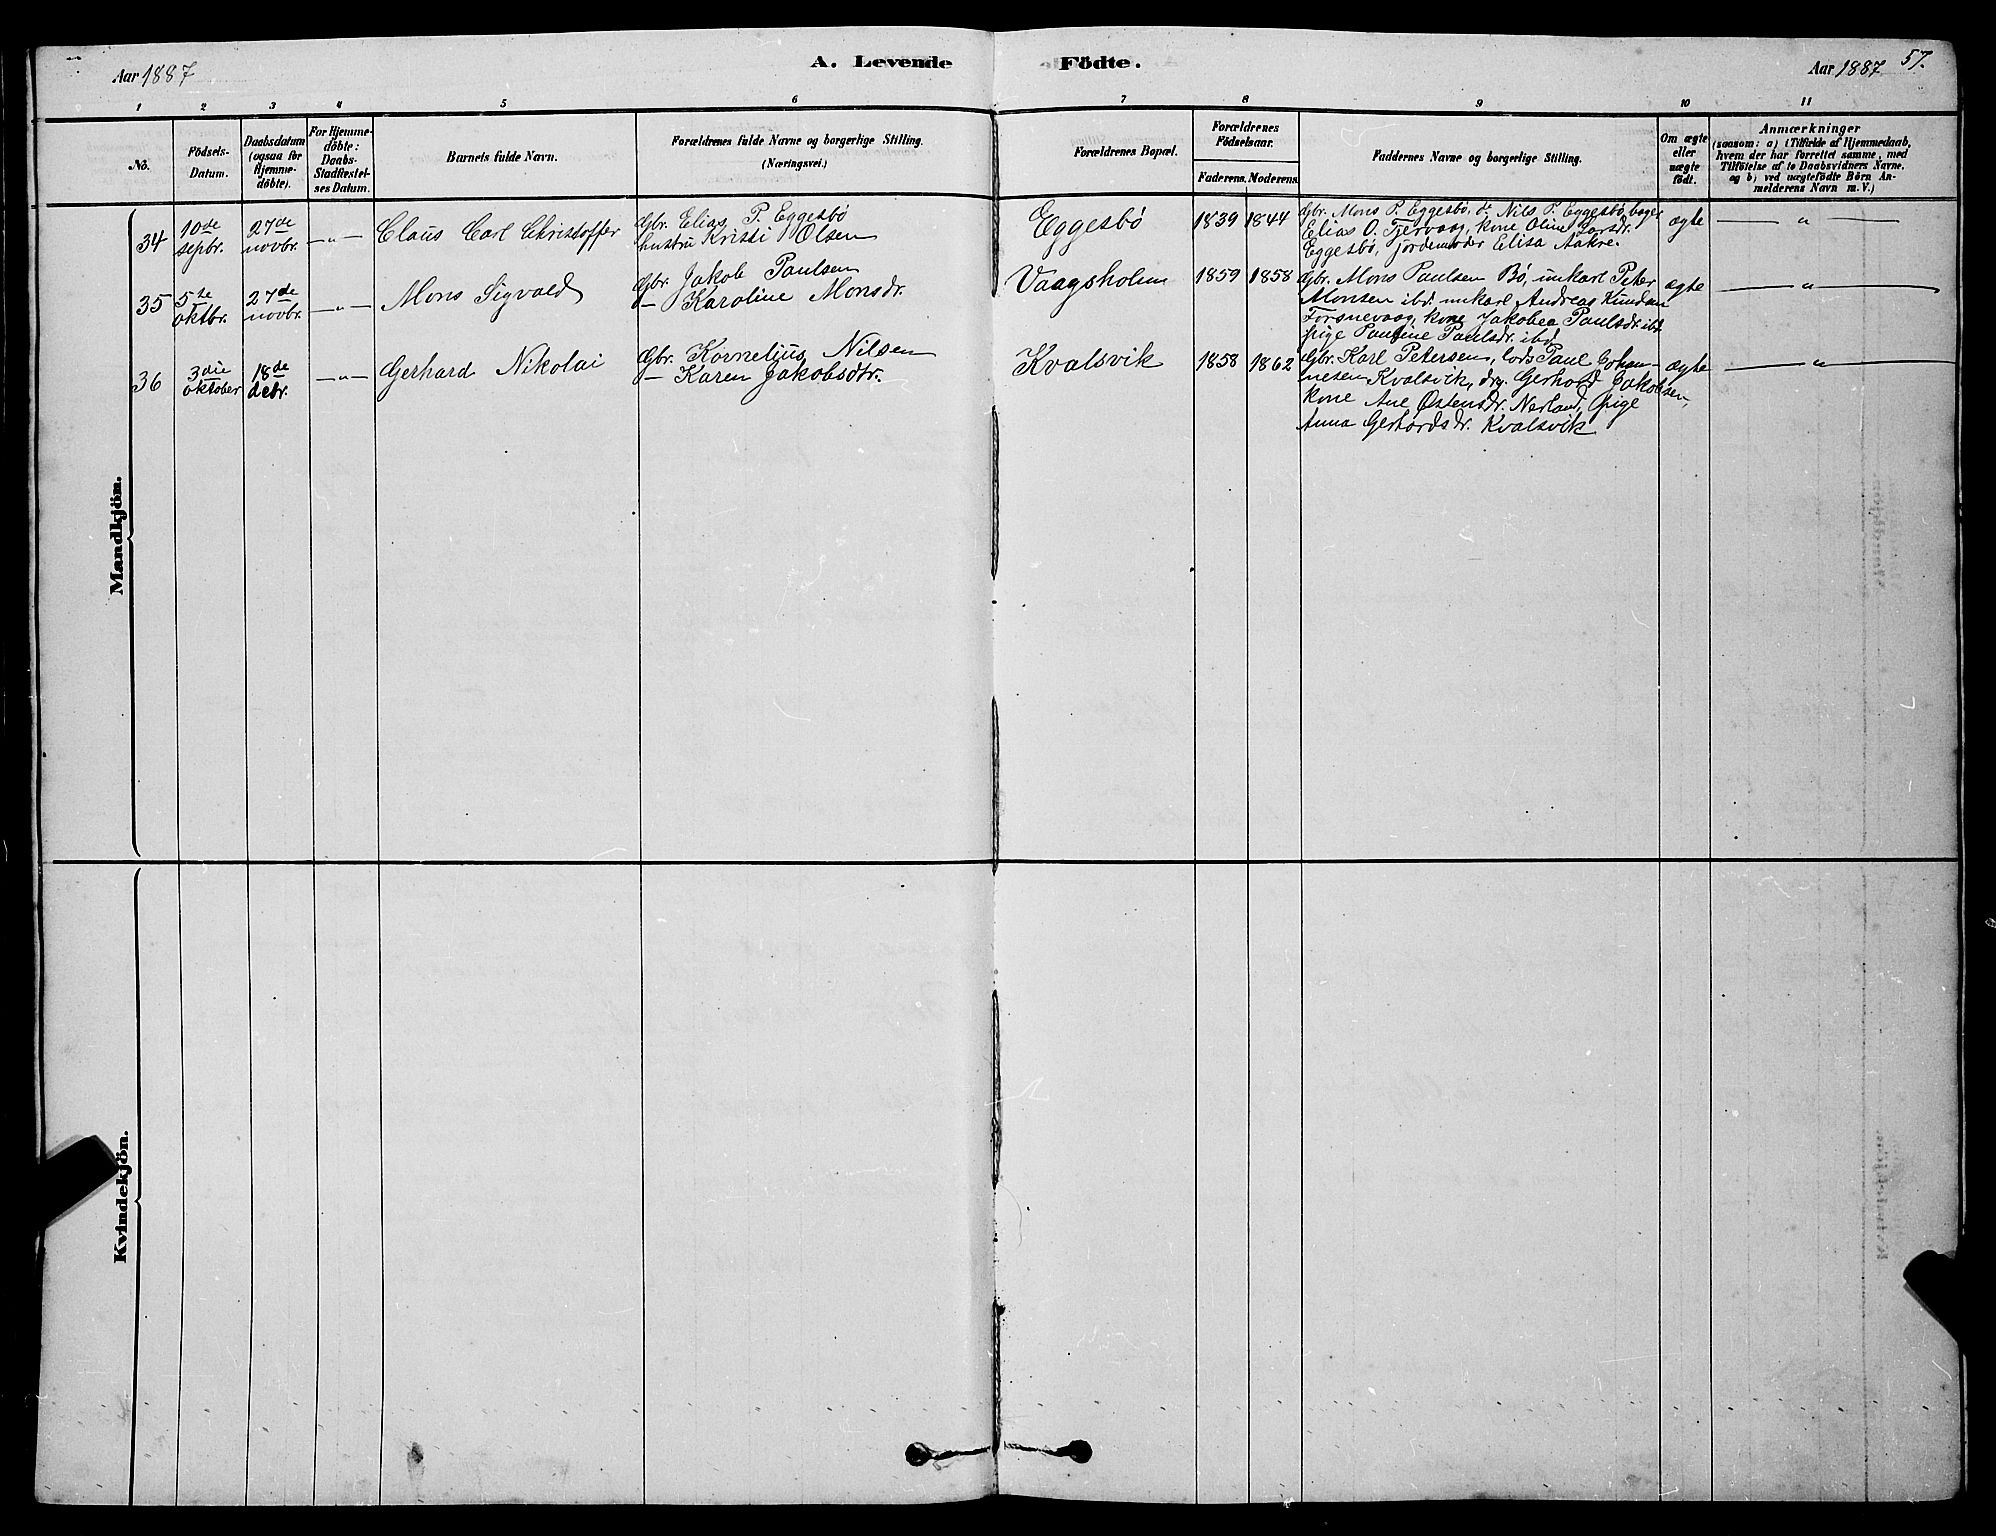 Aar 1887
A. Levende Födte.
Aar 1887
57.
1 2 3 4 5 6 7 8 9 10 11
No.
Födsels-
Datum.
Daabsdatum
(ogsaa for
Hjemme-
döbte).
For Hjemme-
döbte:
Daabs-
Stadfæstel-
ses Datum.
Barnets fulde Navn.
Forældrenes fulde Navne og borgerlige Stilling.
(Næringsvei.)
Forældrenes Bopæl.
Forældrenes
Födselsaar.
Faderens. Moderens.
Faddernes Navne og borgerlige Stilling.
Om ægte
eller
uægte
födt.
Anmærkninger
(saasom: a) i Tilfælde af Hjemmedaab,
hvem der har forrettet samme, med
Tilföielse af to Daabsvidners Navne,
og b) ved uægtefödte Börn An-
melderens Navn m. V.)
Mandkjön.
34
10de
sepbr.
27de
novbr.
—"—
Claus Carl Christoffer
Gbr. Elias P. Eggesbö
hustru Kristi Olsen
Eggesbö
1839
1844
Gbr. Mons P. Eggesbö, do Nils P. Eggesbö, bager
Elias O. Tjervaag, kone Oline Larsdr.
Eggesbö, jordemoder Elisa Aakre.
ægte
— " —
35
5te
oktbr.
27de
novbr.
—"—
Mons Sigvald
Gbr. Jakob Paulsen
— Karoline Monsdr.
Vaagsholm
1859
1858
Gbr. Mons Paulsen Bö, unkarl Peter
Monsen ibd. unkarl Andreas Knudsen
Torsnevaag, kone Jakobea Paulsdr. ibd
pige Pauline Paulsdr. ibd
ægte
— " —
36
3die
oktober
18de
debr.
—"—
Gerhard Nikolai
Gbr. Kornelius Nilsen
— Karen Jakobsdtr.
Kvalsvik
1858
1862
Gbr. Karl Petersen, lods Paul Johan-
nesen Kvalsvik, drg. Gerhold Jakobsen,
kone Ane Östensdr. Nerland, Pige
Anna Gerhardsdr. Kvalsvik
ægte
— " —
Kvindekjön.